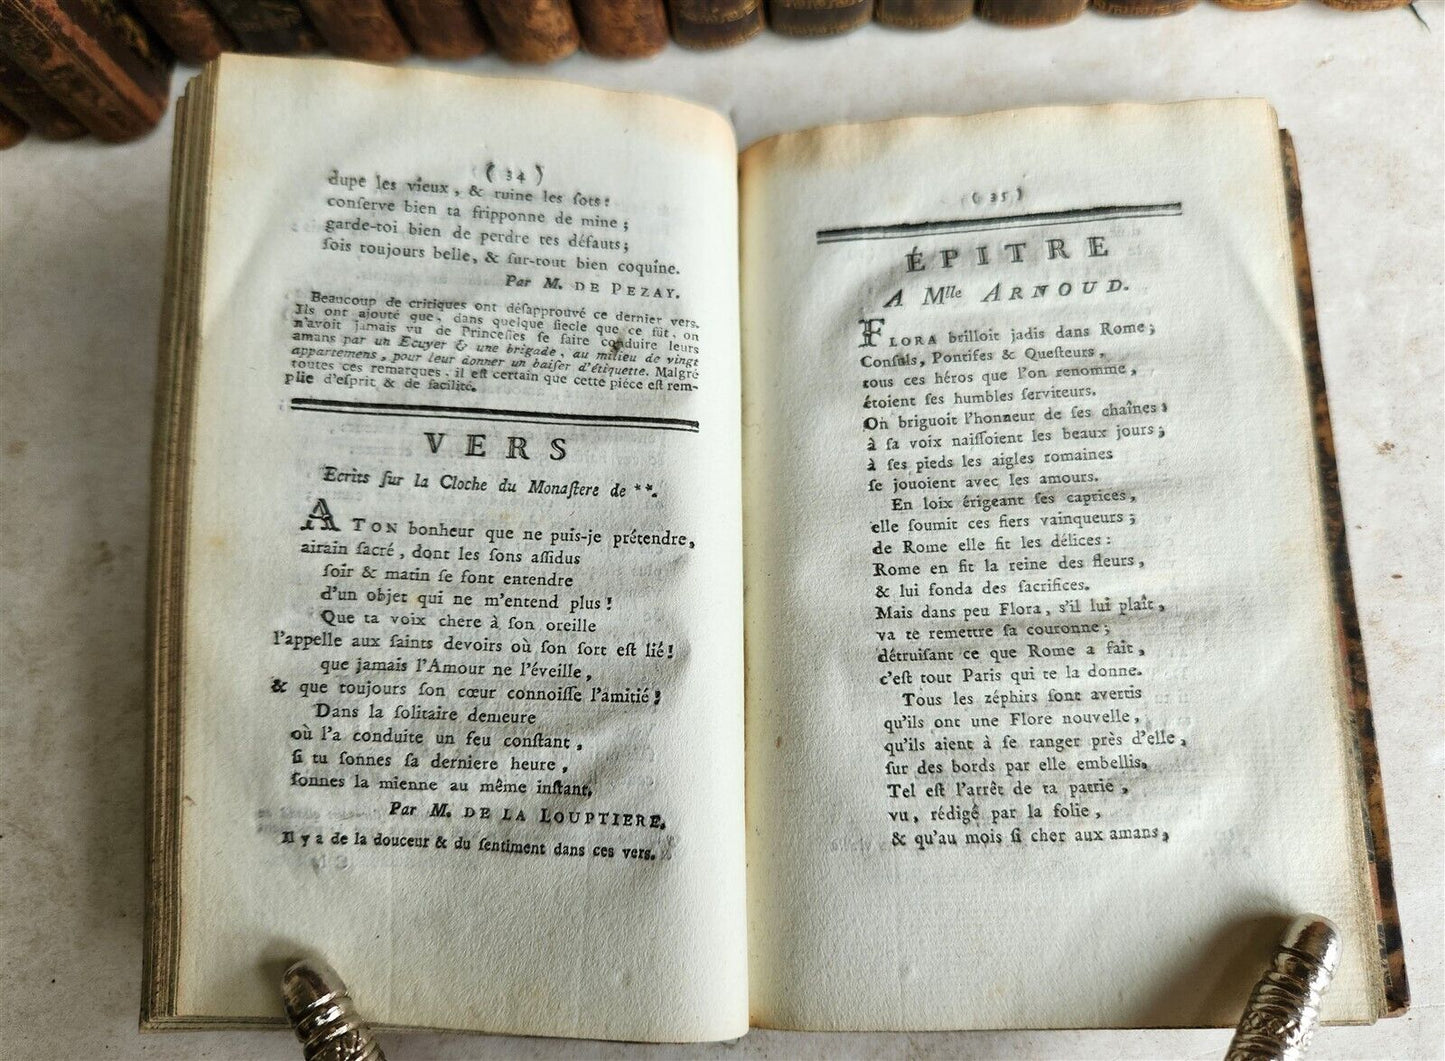 ( 34 )
dupe les vieux, & ruine les ſots:
conſerve bien ta fripponne de mine;
garde-toi bien de perdre tes défauts;
ſois toujours belle, & ſur-tout bien coquine.
Par M. DE PEZAY.
Beaucoup de critiques ont déſapprouvé ce dernier vers.
Ils ont ajouté que, dans quelque ſiecle que ce fût, on
n'avoit jamais vu de Princeſſes ſe faire conduire leurs
amans par un Ecuyer & une brigade, au milieu de vingt
appartemens, pour leur donner un baiſer d'étiquette. Malgré
toutes ces remarques, il eſt certain que cette piéce eſt rem-
plie d'eſprit & de facilité.
VERS
Ecrits ſur la Cloche du Monaſtere de **.
A TON bonheur que ne puis-je prétendre,
airain ſacré, dont les ſons aſſidus
ſoir & matin ſe font entendre
d'un objet qui ne m'entend plus!
Que ta voix chere à ſon oreille
l'appelle aux ſaints devoirs où ſon ſort eſt lié!
que jamais l'Amour ne l'éveille,
& que toujours ſon cœur connoiſſe l'amitié!
Dans la ſolitaire demeure
où l'a conduite un feu conſtant,
ſi tu ſonnes ſa derniere heure,
ſonnes la mienne au même inſtant.
Par M. DE LA LOUPTIERE.
Il y a de la douceur & du ſentiment dans ces vers.
( 35 )
ÉPITRE
A Mlle ARNOUD.
FLORA brilloit jadis dans Rome;
Conſuls, Pontifes & Queſteurs,
tous ces héros que l'on renomme,
étoient ſes humbles ſerviteurs.
On briguoit l'honneur de ſes chaînes;
à ſa voix naiſſoient les beaux jours;
à ſes pieds les aigles romaines
ſe jouoient avec les amours.
En loix érigeant ſes caprices,
elle ſoumit ces fiers vainqueurs;
de Rome elle fit les délices:
Rome en fit la reine des fleurs,
& lui fonda des ſacrifices.
Mais dans peu Flora, s'il lui plaît,
va te remettre ſa couronne;
détruiſant ce que Rome a fait,
c'eſt tout Paris qui te la donne.
Tous les zéphirs ſont avertis
qu'ils ont une Flore nouvelle,
qu'ils aient à ſe ranger près d'elle,
ſur des bords par elle embellis.
Tel eſt l'arrêt de ta patrie,
vu, rédigé par la folie,
& qu'au mois ſi cher aux amans,